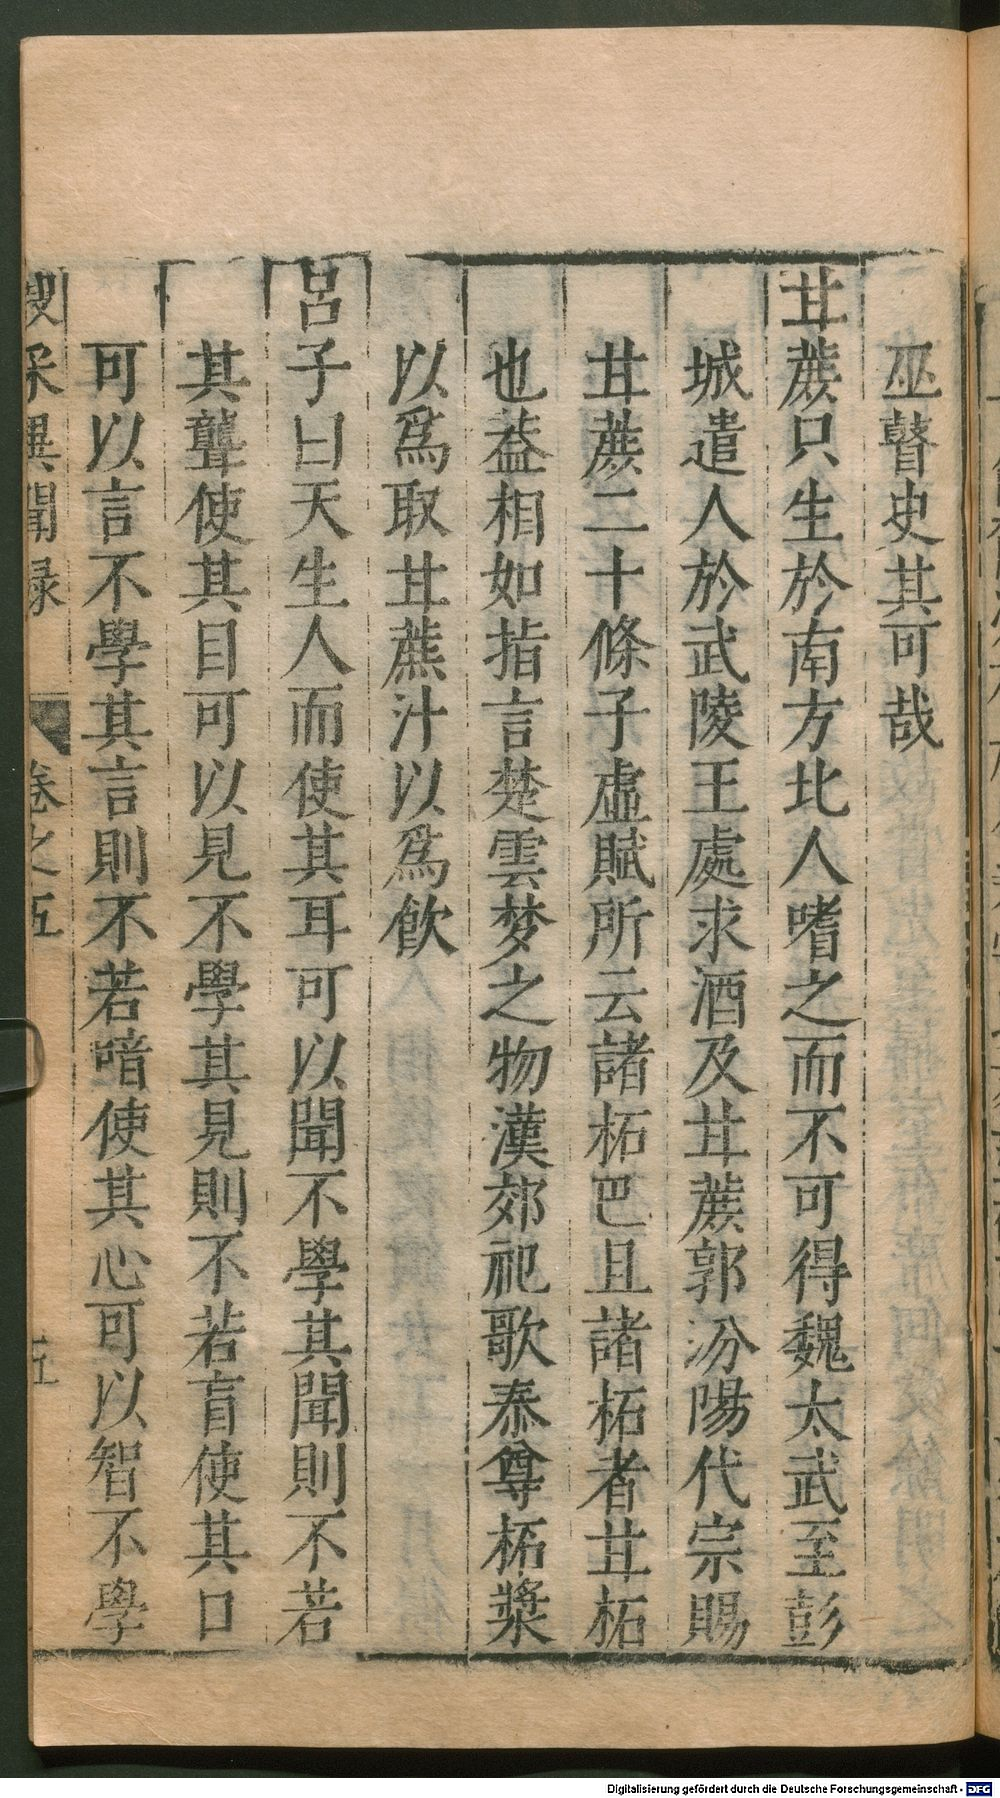 巫瞽史其可哉
甘蔗只生於南方北人嗜之而不可得魏太武至彭
城遣人於武陵王處求酒及甘蔗郭汾陽代宗賜
甘蔗二十條子虛賦所云諸柘巴且諸柘者甘柘
也葢相如指言楚雲梦之物漢郊祀歌泰尊柘漿
以爲取甘蔗汁以爲飲
呂子曰天生人而使其耳可以聞不學其聞則不若
其聾使其目可以見不學其見則不若盲使其口
可以言不學其言則不若喑使其心可以智不學
搜采異聞録 卷之五 五
Digitalisierung gefördert durch die Deutsche Forschungsgemeinschaft - DFG